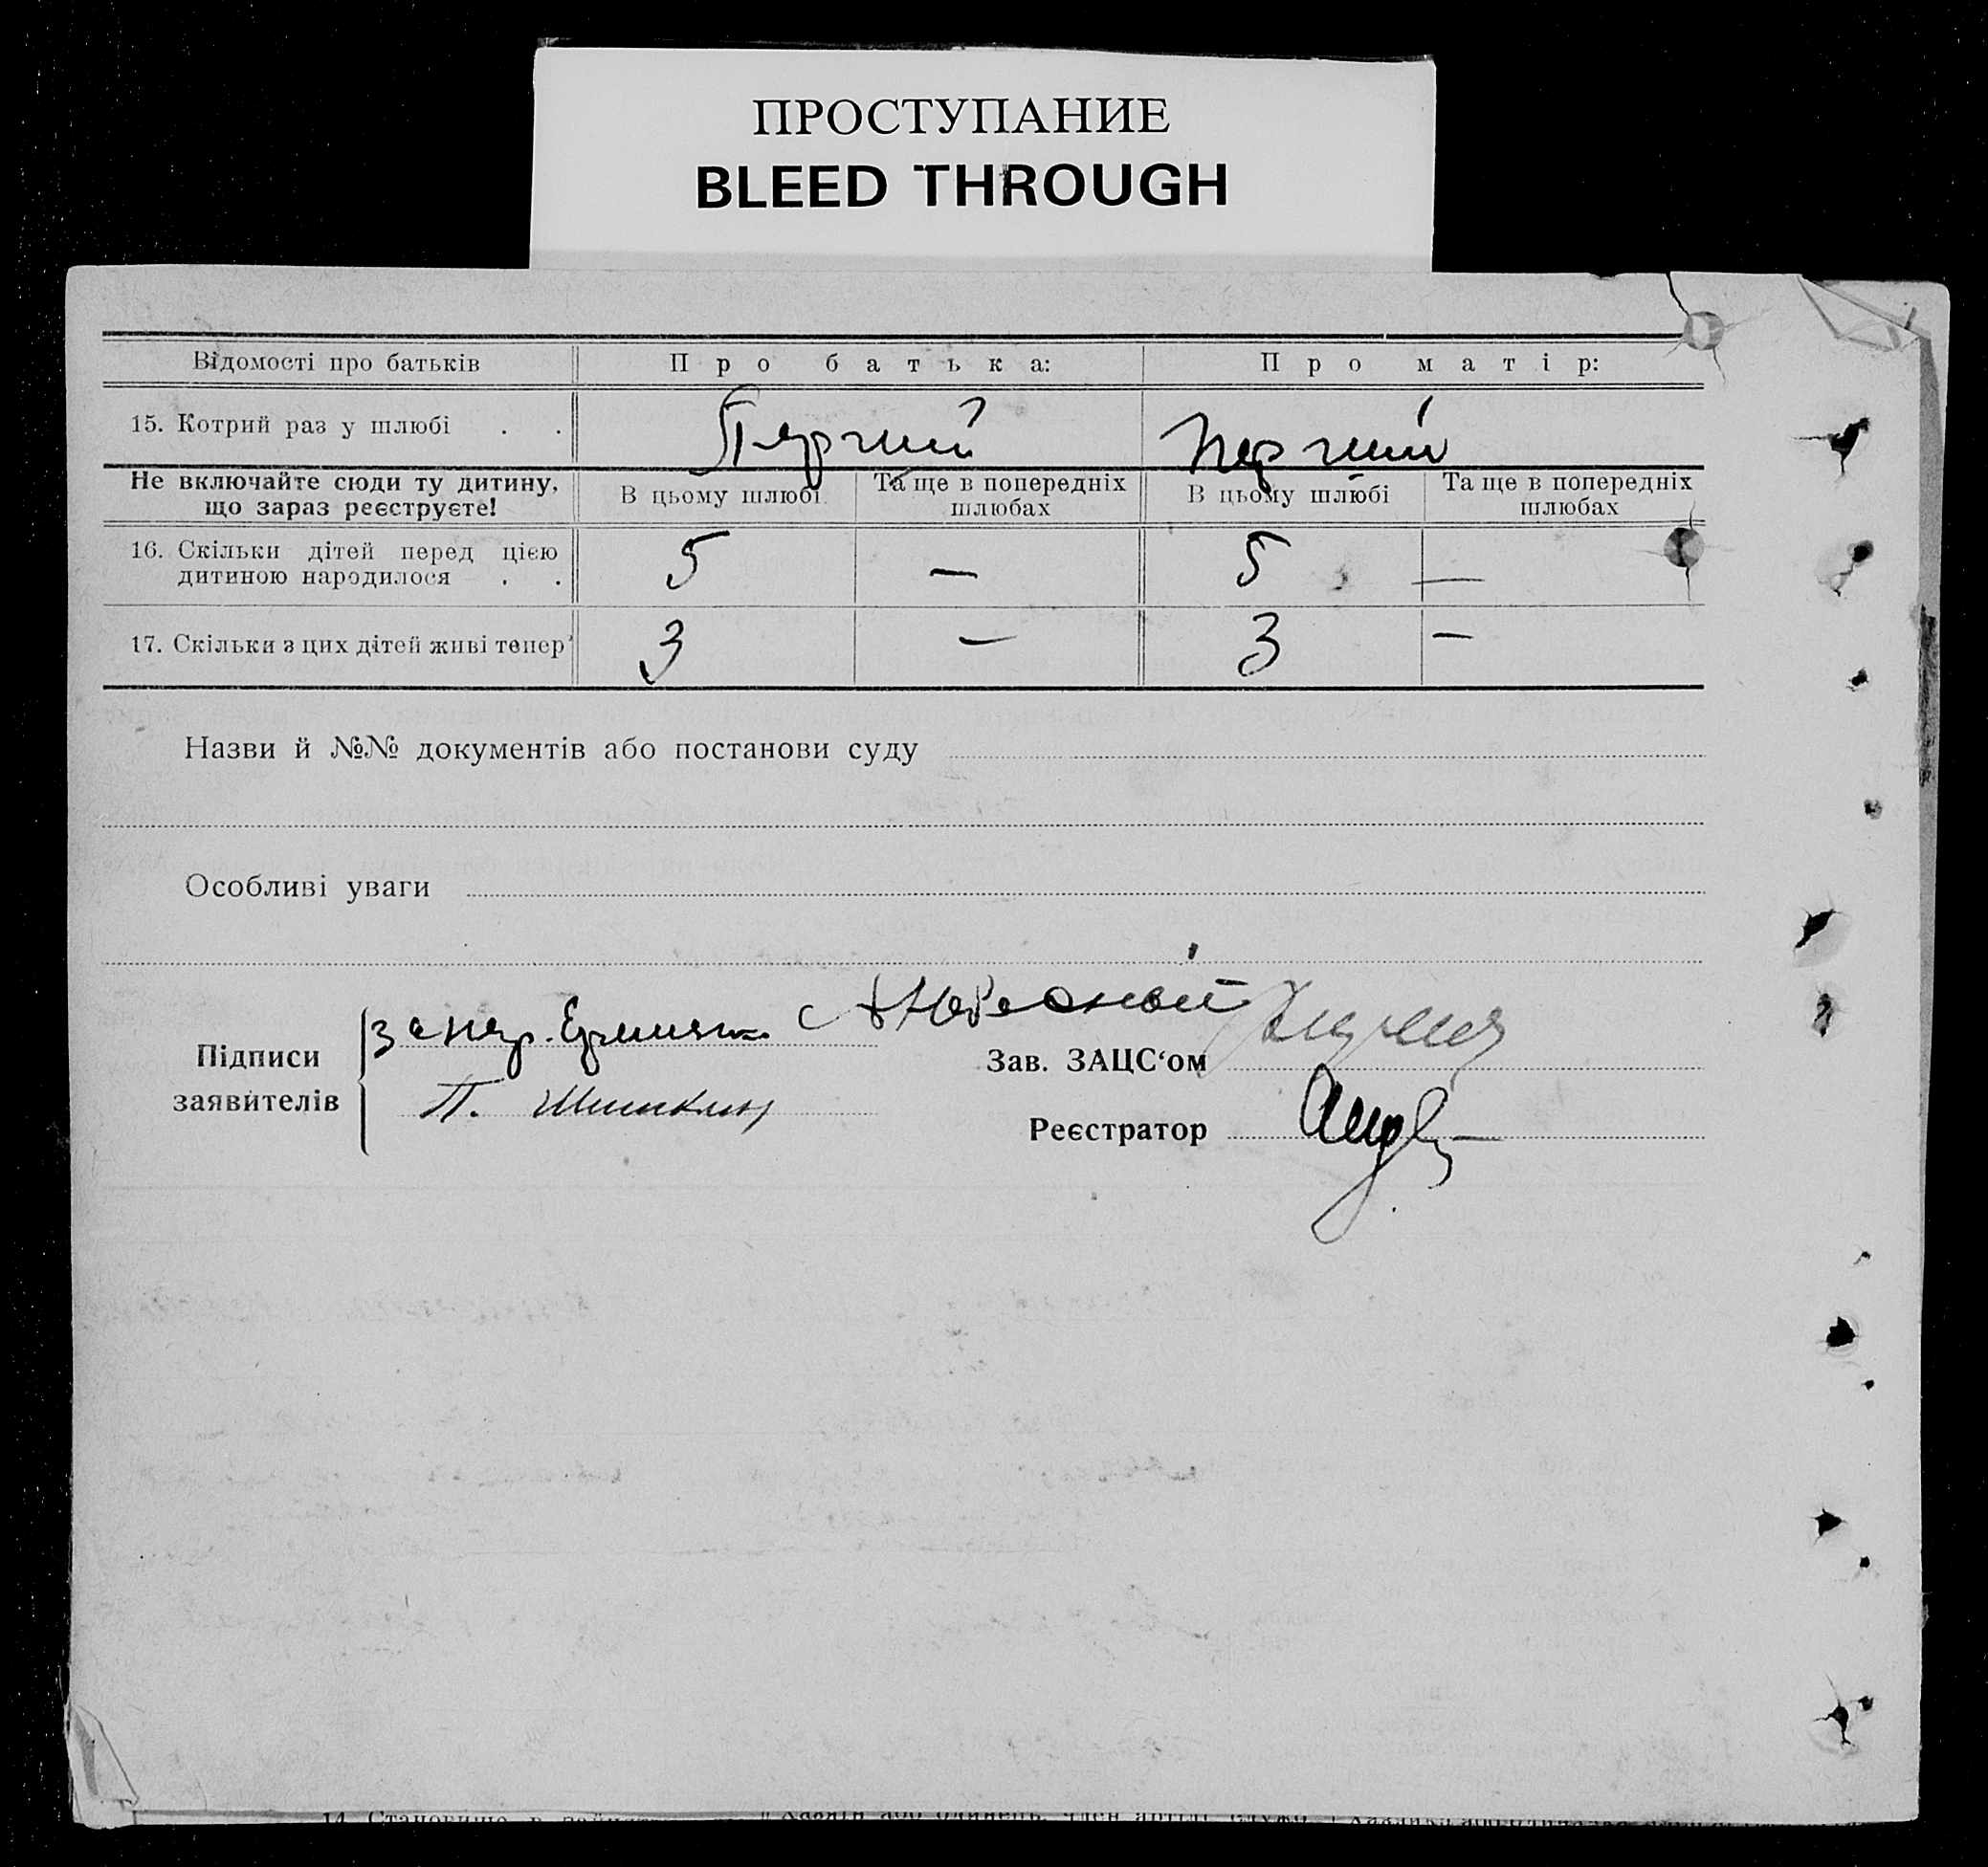 ПРОСТУПАНИЕ
BLEED THROUGH
Відомості про батьків Про батька: Про матір:
15. Котрий раз у шлюбі . . Перший Перший
Не включайте сюди ту дитину, що зараз реєструєте! В цьому шлюбі Та ще в попередніх шлюбах В цьому шлюбі Та ще в попередніх шлюбах
16. Скільки дітей перед цією дитиною народилося . . 5 — 5 —
17. Скільки з цих дітей живі тепер 3 — 3 —
Назви й №№ документів або постанови суду
Особливі уваги
Підписи заявителів
П. Шишкин
Зав. ЗАЦС‘ом
Реєстратор